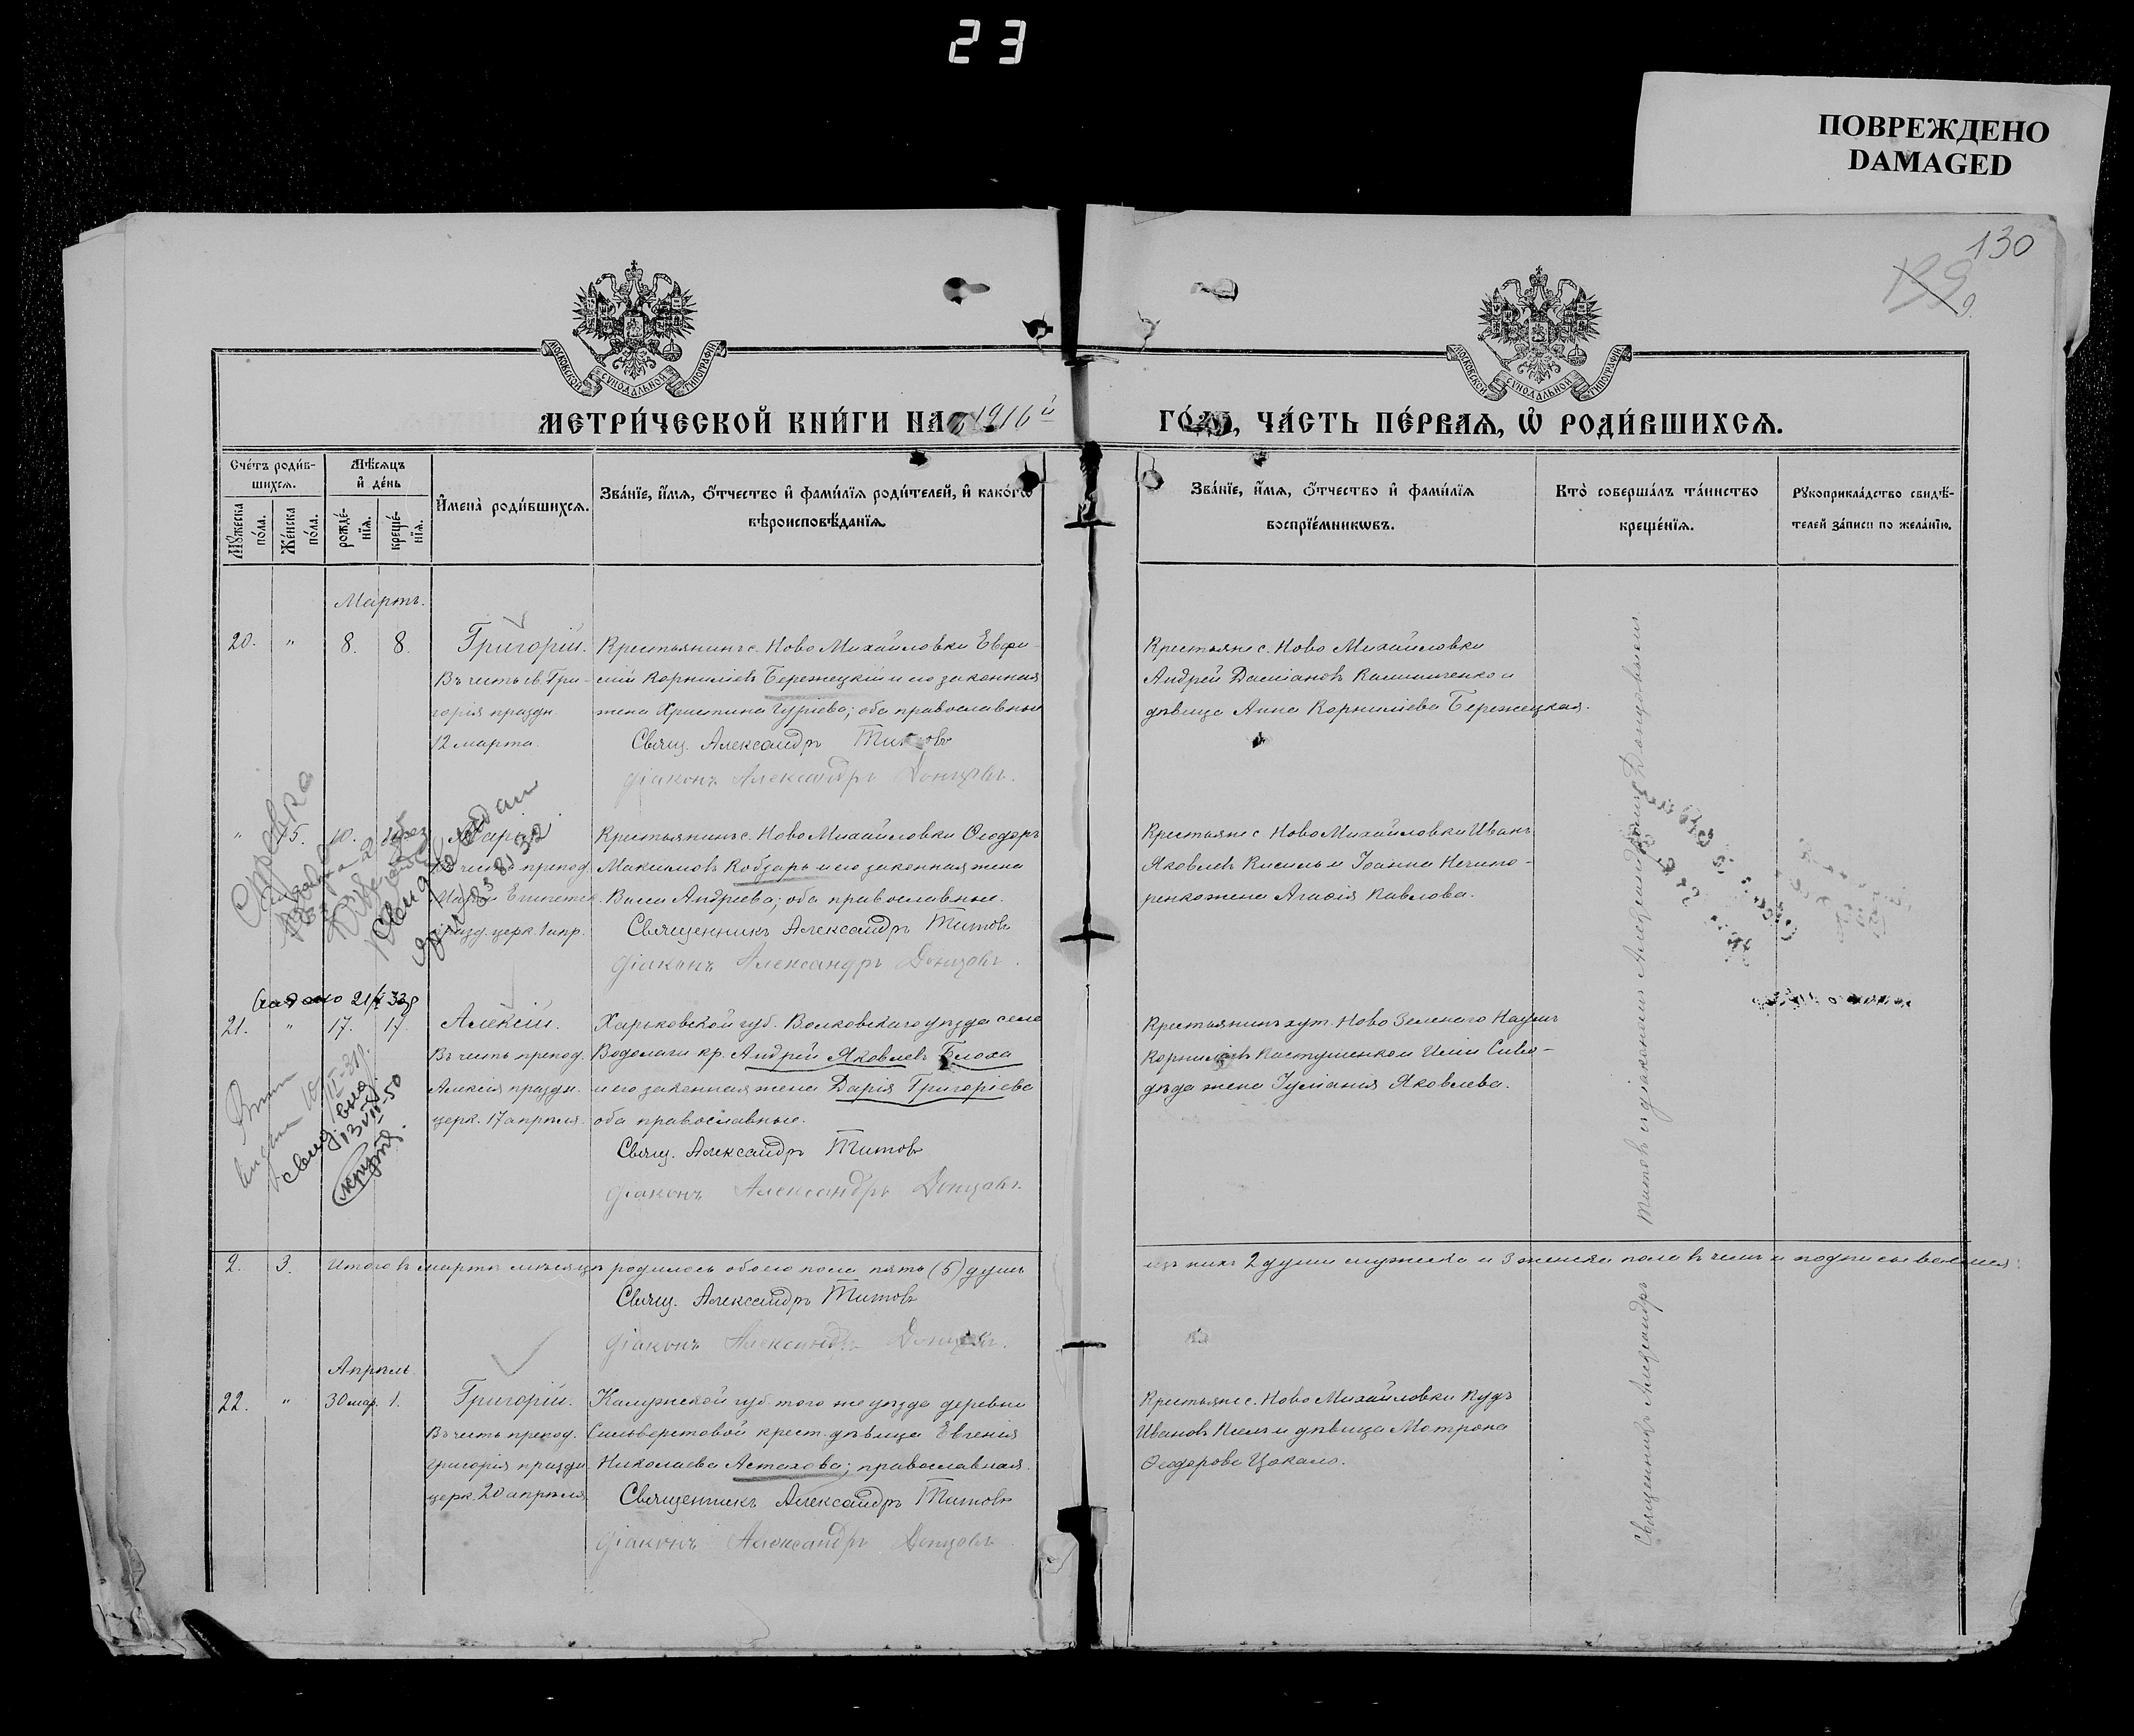 23
ПОВРЕЖДЕНО
DAMAGED
130
МОСКОВСКОЙ СѴНОДАЛЬНОЙ ТИПОГРАФІИ
МОСКОВСКОЙ СѴНОДАЛЬНОЙ ТИПОГРАФІИ
МЕТРИ́ЧЕСКОЙ КНИ́ГИ НА 1916й
ГО́ДЪ, ЧА́СТЬ ПЕ́РВАѦ, Ѽ РОДИ́ВШИХСѦ.
Сче́тъ роди́в-
шихсѧ.
Мѣ́сѧцъ
и҆ де́нь
Мꙋ́жеска
по́ла.
Же́нска
по́ла.
рожде́-
нїѧ.
креще́-
нїѧ.
И҆мена̀ роди́вшихсѧ.
Зва́нїе, и҆́мѧ, ѻ҆́тчество и҆ фами́лїѧ роди́телей, и҆ како́гѡ
вѣроисповѣ́данїѧ.
Зва́нїе, и҆́мѧ, ѻ҆́тчество и҆ фами́лїѧ
воспрїе́мникѡвъ.
Кто̀ соверша́лъ та́инство
креще́нїѧ.
Рꙋкоприкла́дство свидѣ́-
телей за́писи по жела́нїю.
Мартъ.
20. " 8. 8. Григорій.
Въ честь св. Гри-
горія праздн.
12 марта.
Крестьянинъ с. Ново Михайловки Евфи-
мій Корниліевъ Бережецкій и его законная
жена Христина Гуріева; оба православные
Свящ. Александръ Титовъ
Діаконъ Александръ Донцовъ.
Крестьяне с. Ново Михайловки
Андрей Даміановъ и
дѣвица Анна Корниліева Бережецкая.
Справка
" 15. 10. Марія
честь препод.
Маріи Египетск.
празд. церк. 1 апр.
Крестьянинъ с. Ново Михайловки Ѳеодоръ
Максимовъ Кобзарь и его законная жена
Васса Андреева; оба православные.
Священникъ Александръ Титовъ
Діаконъ Александръ Донцовъ.
Крестьяне с. Ново Михайловки Иванъ
Яковлевъ Кисиль и Іоанна Нечипо-
ренко жена Агафія Павлова.
21. " 17. 17. Алексій.
Въ честь препод.
Алексія праздн.
церк. 17 апрѣля.
Харьковской губ. Волковскаго уѣзда села
Водолаги кр. Андрей Яковлевъ Блоха
и его законная жена Дарія Григоріева
оба православные.
Свящ. Александръ Титовъ
Діаконъ Александръ Донцовъ.
Крестьянинъ хут. Ново Зеленаго Наумъ
Корниліевъ Пастушенко и Иліи Сиво-
дѣда жена Іуліанія Яковлева.
2. 3. Итого въ мартѣ мѣсяцѣ родилось обоего пола пять (5) душъ
изъ нихъ 2 души мужска и 3 женска пола въ чемъ и подписываемся:
Свящ. Александръ Титовъ
Діаконъ Александръ Донцовъ.
Апрѣль
22. " 30 мар. 1. Григорій.
Въ честь препод.
Григорія праздн.
церк. 20 апрѣля
Калужской губ. того же уѣзда деревни
Сильверстовой крест. дѣвица Евгенія
Николаева Астахова; православная.
Священникъ Александръ Титовъ
Діаконъ Александръ Донцовъ
Крестьяне с. Ново Михайловки
Ивановъ и дѣвица Матрона
Ѳеодорова Цокало.
Священникъ Александръ Титовъ съ діакономъ Александромъ Донцовымъ